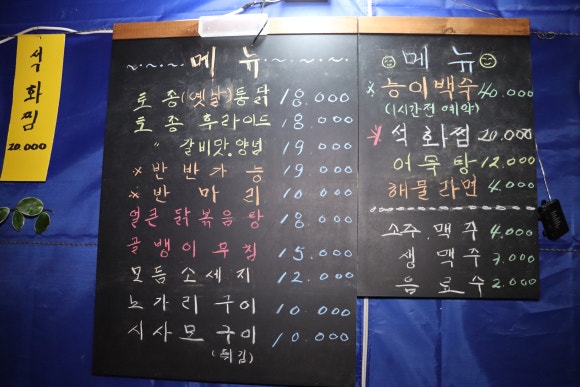 석화찜
20.000
~·~·~· 메뉴 ·~·~·~
토종(옛날)통닭 18.000
토종 후라이드 18.000
〃 갈비맛.양념 19.000
×반반가능 19.000
×반마리 10.000
얼큰닭볶음탕 18.000
골뱅이무침 15.000
모듬소세지 12.000
노가리구이 10.000
시사모구이 10.000
(튀김)
메뉴
×능이백수 40.000
(1시간전 예약)
석화찜 20.000
어묵탕 12.000
해물라면 4.000
소주.맥주 4.000
생맥주 3.000
음료수 2.000